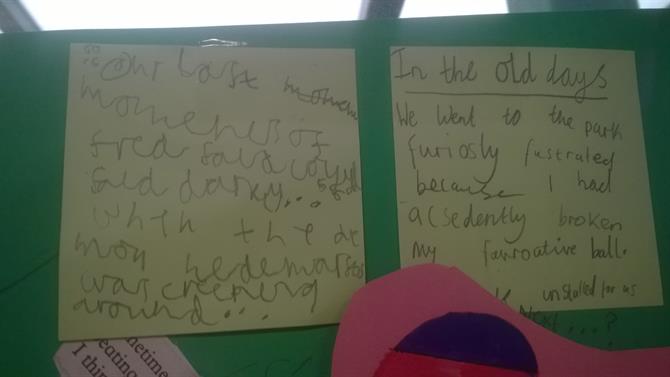 Our last momen
moments of
fred said
said darkly...
when the de
mon hedemaster
was creeping
around...
In the old days
We went to the park
furiosly fustrated
because I had
acsedently broken
my favroative ball.
installed for us
next...?
ometime
eating
I thin